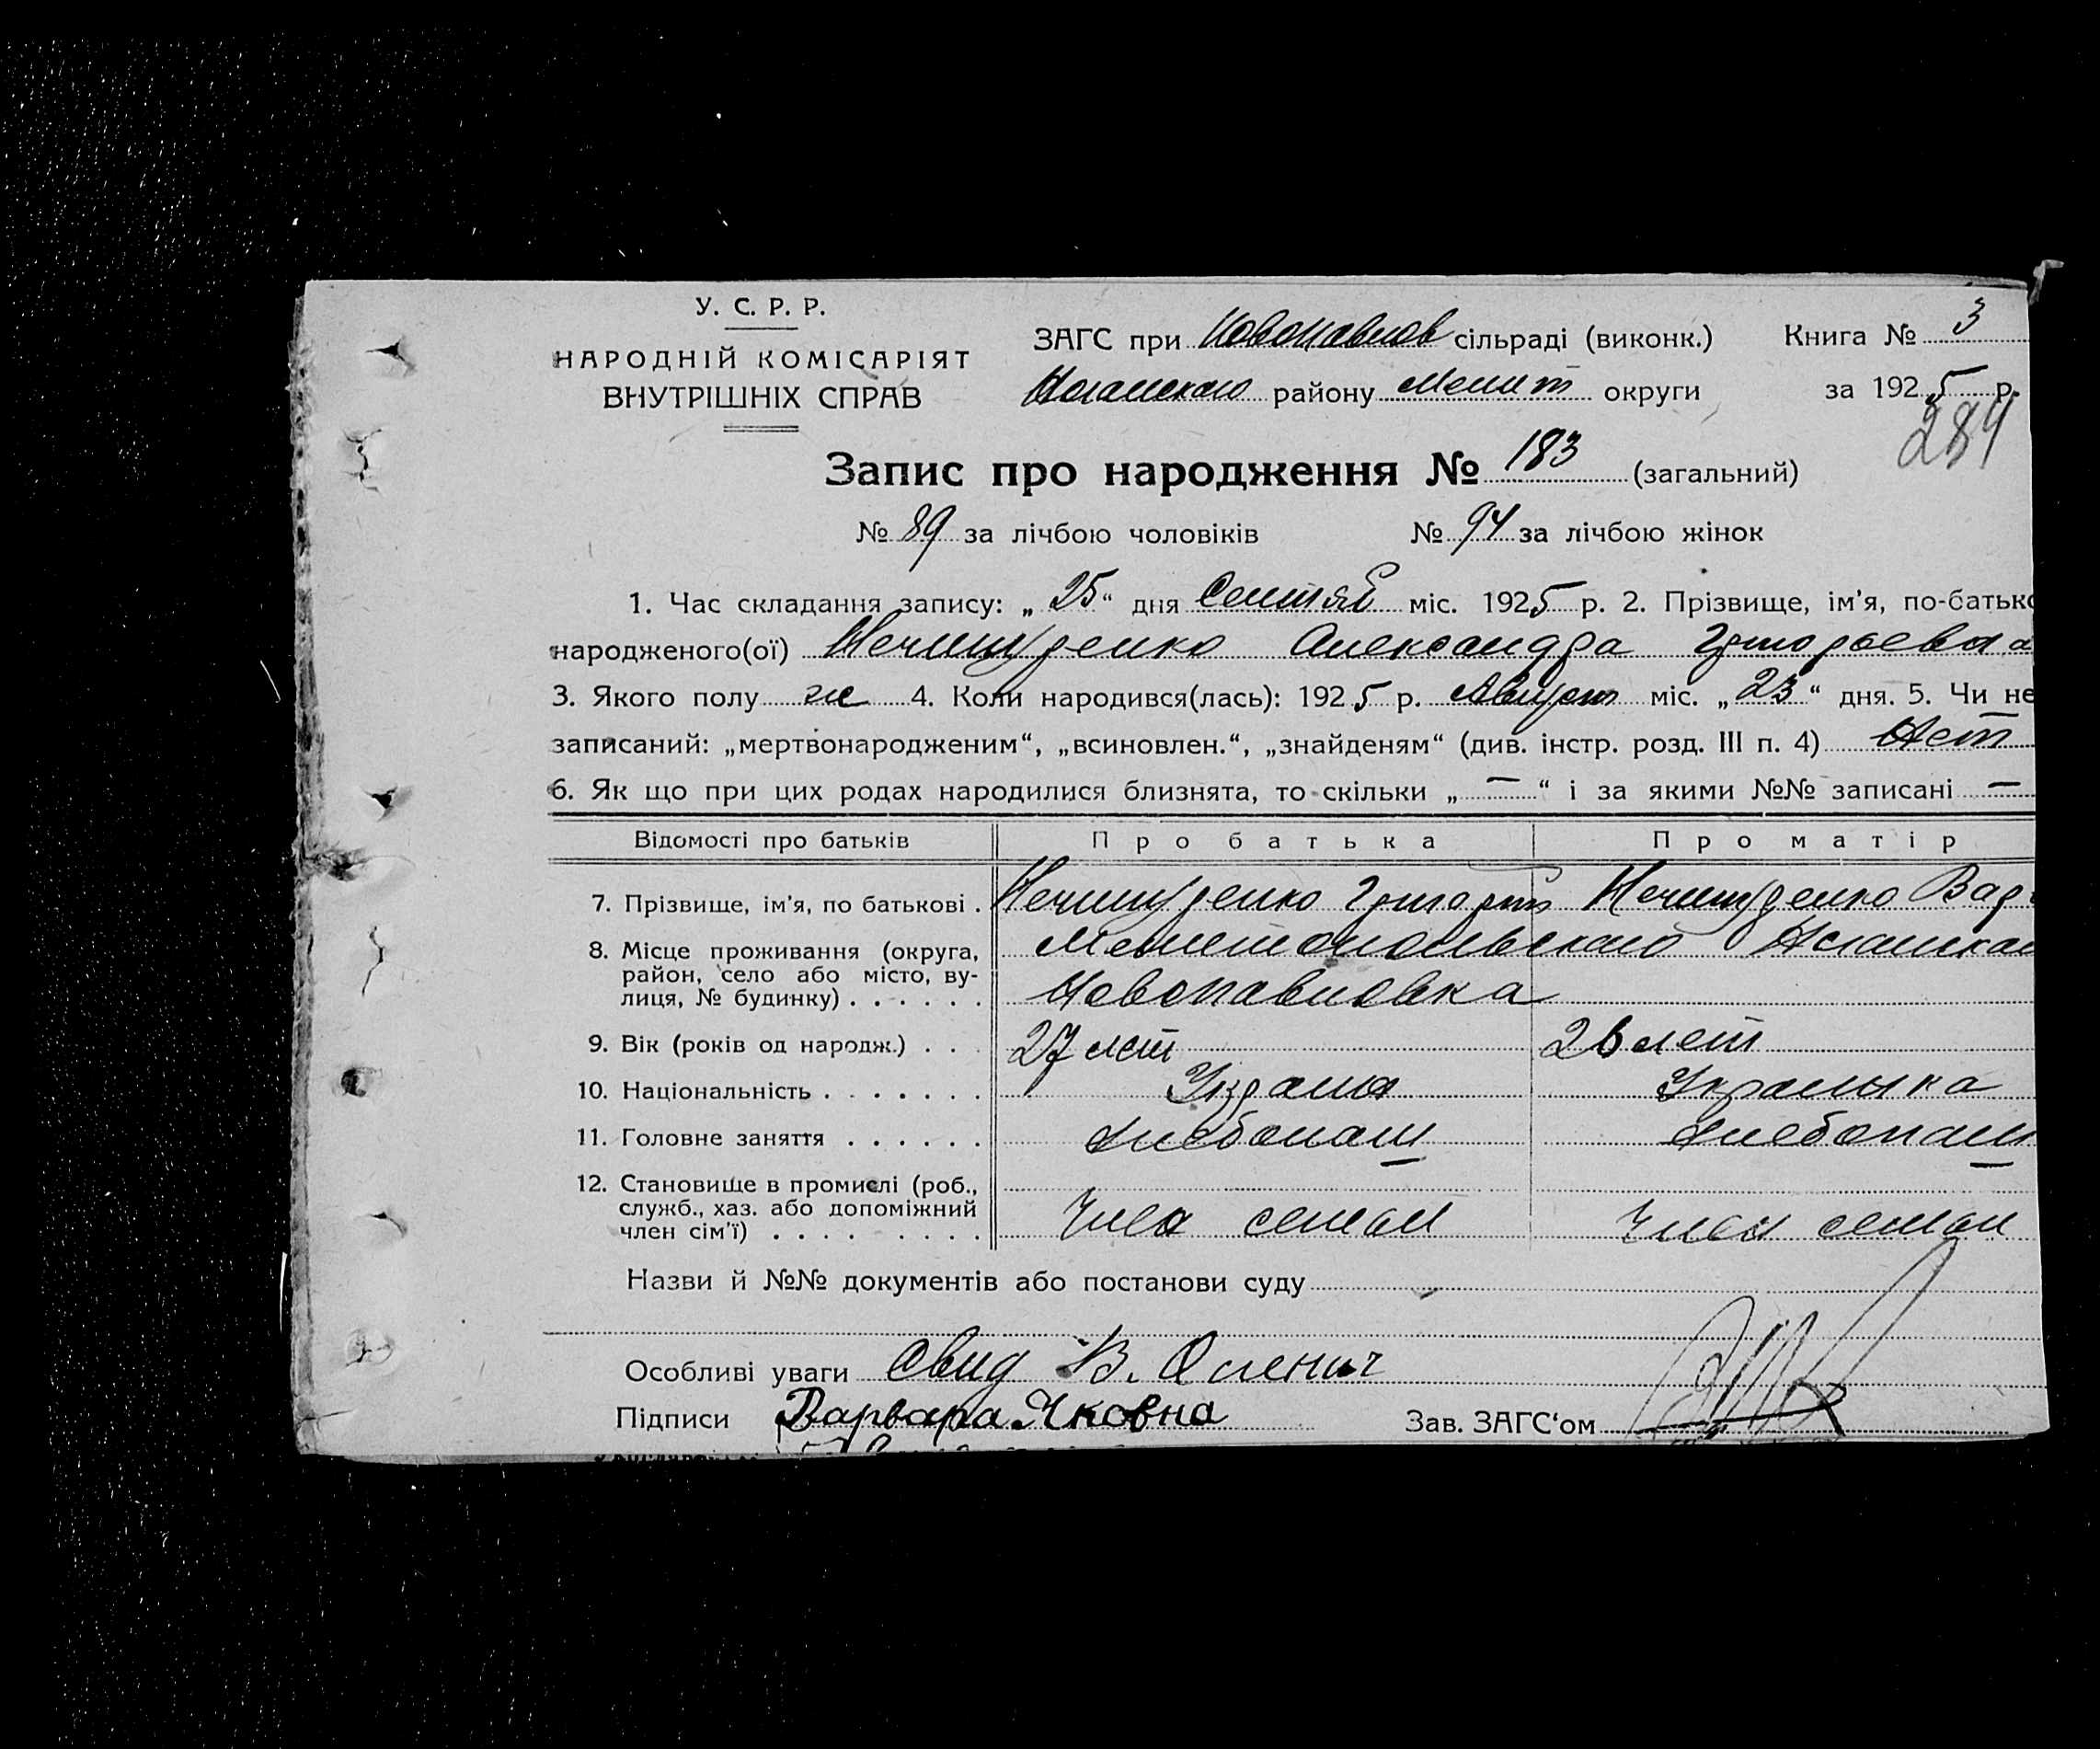 У. С. Р. Р.
НАРОДНІЙ КОМІСАРІЯТ
ВНУТРІШНІХ СПРАВ
ЗАГС при Новопавлов сільраді (виконк.) Книга № 3
району Мелит округи за 1925 р.
284
Запис про народження № 183 (загальний)
№ 89 за лічбою чоловіків № 94 за лічбою жінок
1. Час складання запису: „ 25 “ дня Сентяб міс. 1925 р. 2. Прізвище, ім'я, по-батько
народженого(ої) Александра Григорьевна
3. Якого полу ж 4. Коли народився(лась): 1925 р. Август міс. „ 23 “ дня. 5. Чи не
записаний: „мертвонародженим“, „всиновлен.“, „знайденям“ (див. інстр. розд. III п. 4) Нет
6. Як що при цих родах народилися близнята, то скільки „ — “ і за якими №№ записані —
Відомості про батьків Про батька Про матір
7. Прізвище, ім'я, по батькові . Вар
8. Місце проживання (округа, Мелитопольскаго
район, село або місто, ву-
лиця, № будинку) . . . . . . Новопавловка
9. Вік (років од народж.) . . . 27 лет 26 лет
10. Національність . . . . . . . Украин Украинка
11. Головне заняття . . . . . . Хлебопаш Хлебопаш
12. Становище в промислі (роб.,
служб., хаз. або допоміжний
член сім'ї) . . . . . . . . . Член семьи Член семьи
Назви й №№ документів або постанови суду
Особливі уваги Свид В. Оленич
Підписи Варвара Яковна Зав. ЗАГС'ом